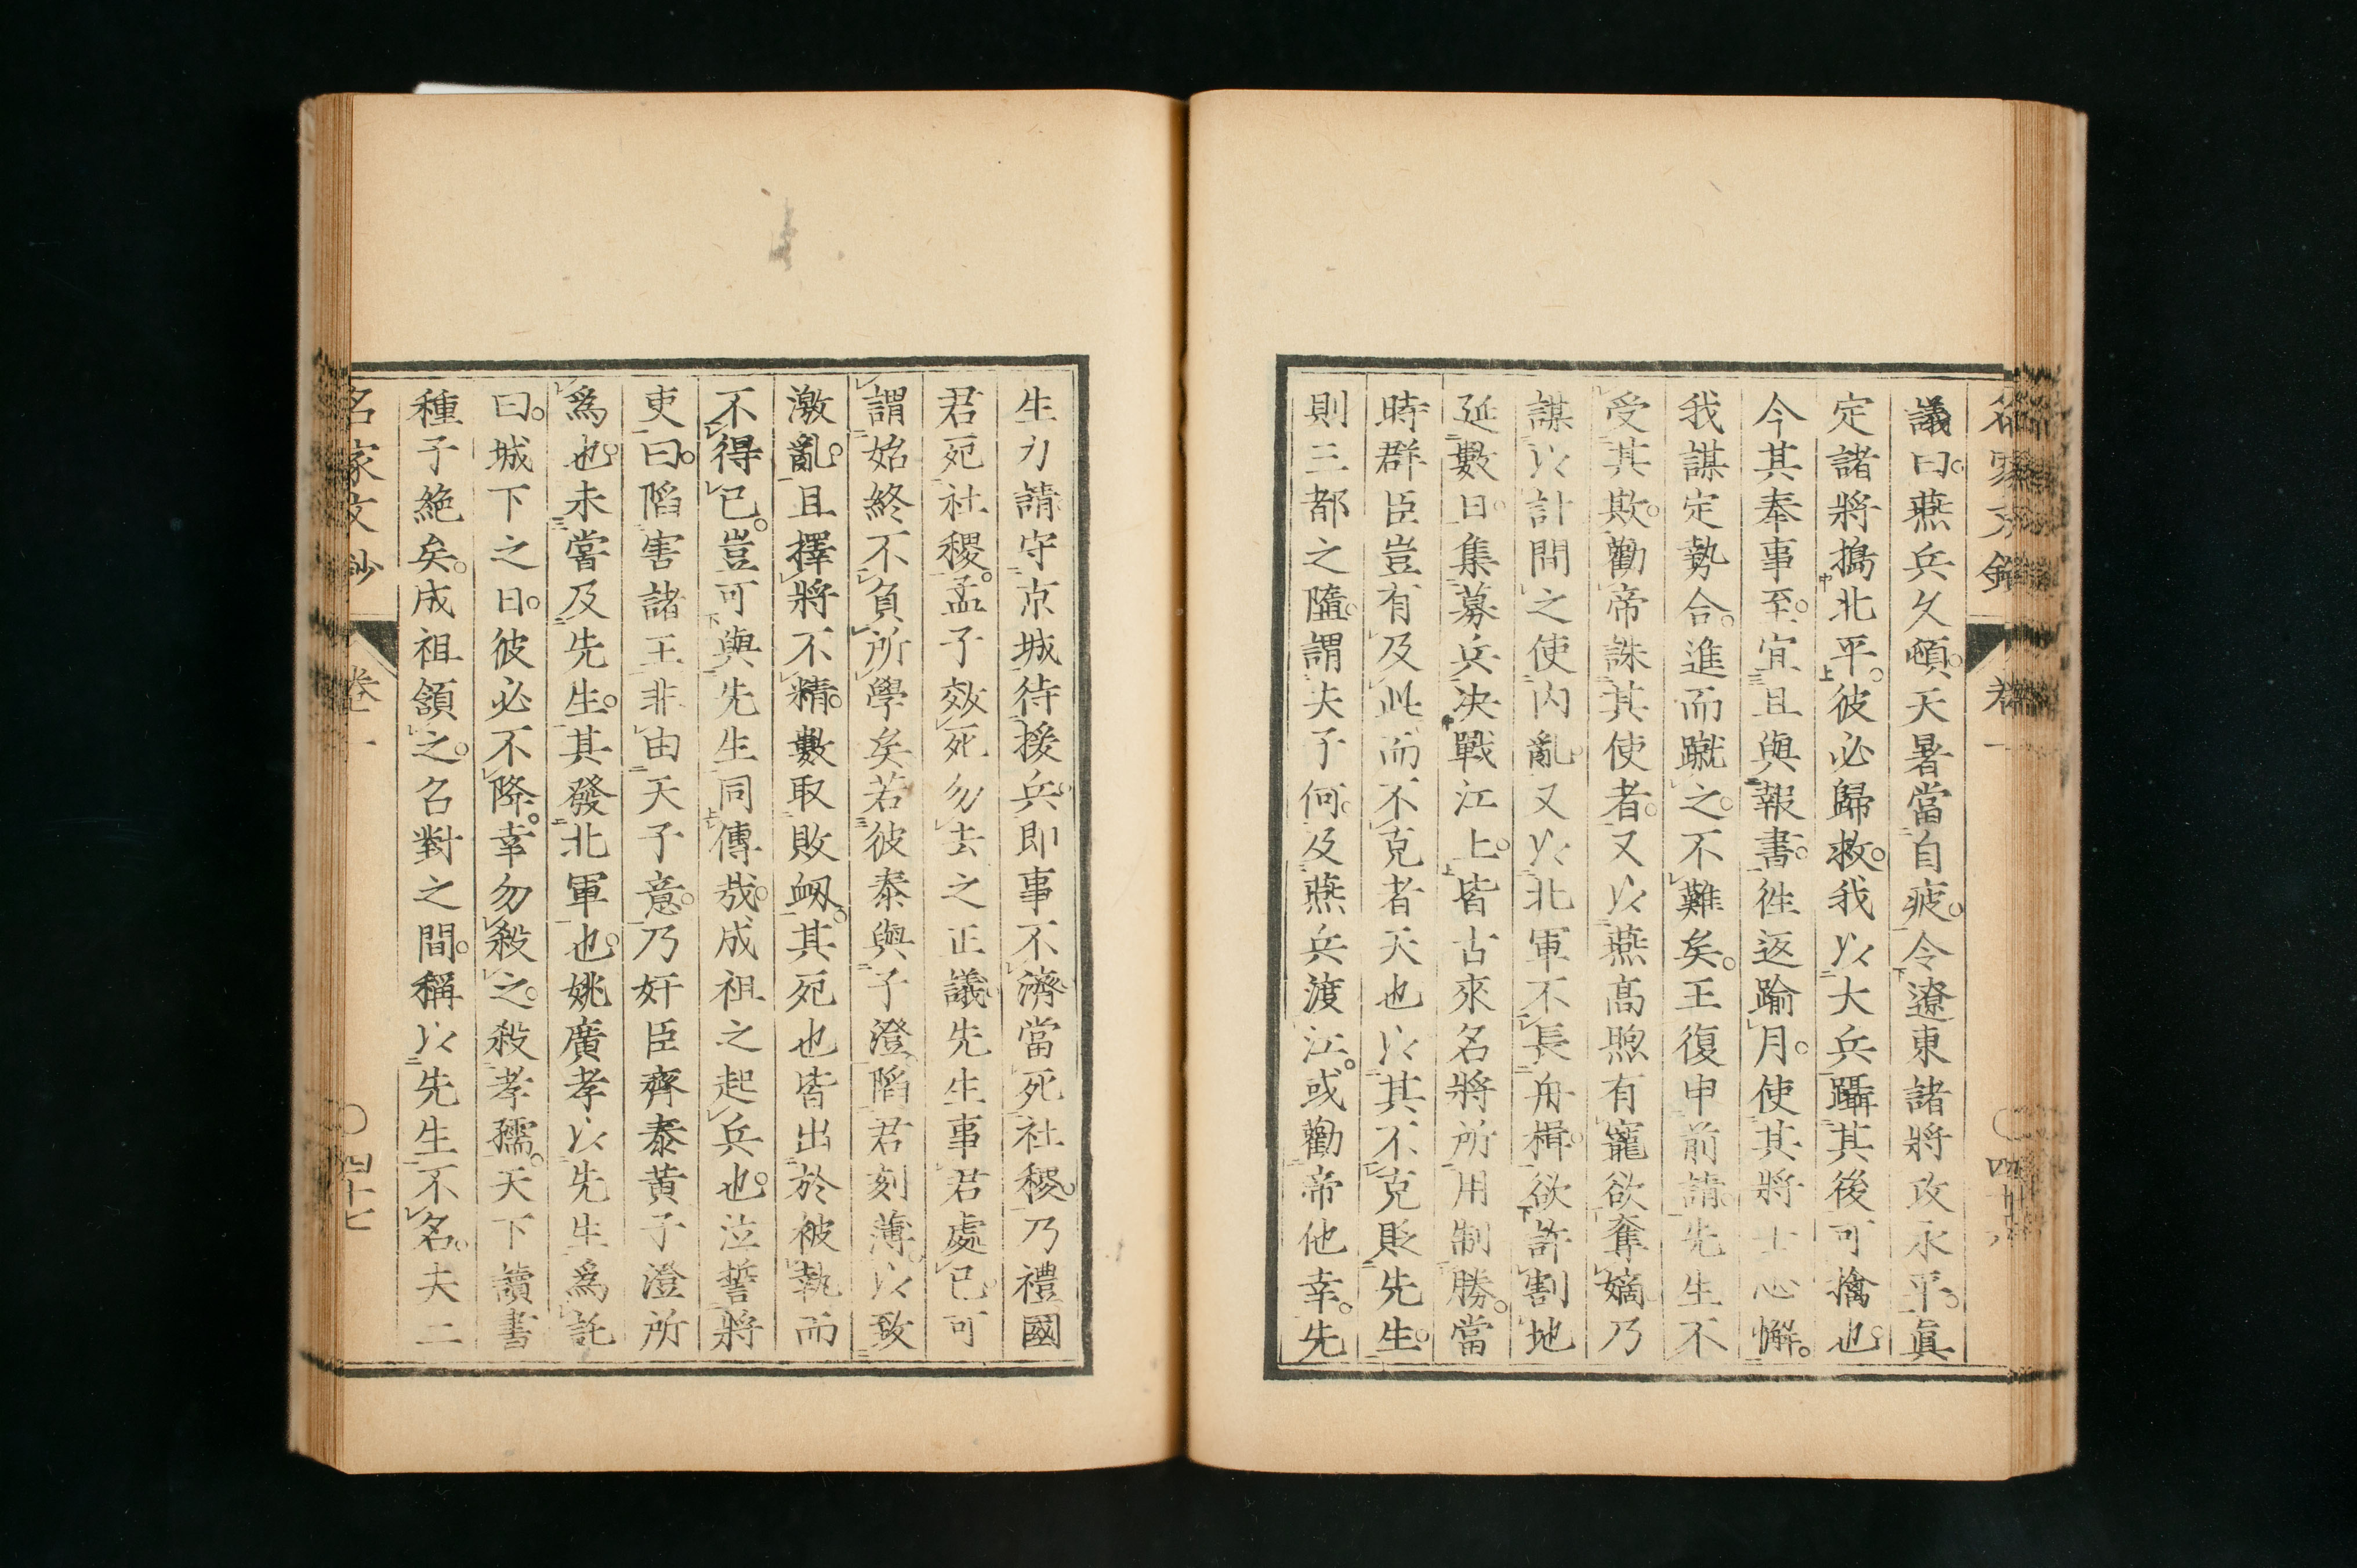 議曰。燕兵久頓。天暑當自疲。令遼東諸將攻永平。眞
定諸將搗北平。彼必歸救。我以大兵躡其後可擒也。
今其奉事至。宜且與報書。徃返踰月。使其將士心懈。
我謀定勢合。進而蹴之。不難矣。王復申前請。先生不
受其欺。勸帝誅其使者。又以燕高煦有寵欲奪嫡乃
謀以計間之使内亂。又以北軍不長舟楫。欲許割地
延數日。集募兵决戰江上。皆古來名將所用制勝。當
時群臣豈有及此而不克者天也以其不克貶先生。
則三都之隳。謂夫子何。及燕兵渡江。或勸帝他幸。先
生力請守京城待援兵。即事不濟當死社稷。乃禮國
君死社稷。孟子效死勿去之正議先生事君處已可
謂始終不負所學矣若彼泰與子澄陷君刻薄。以致
激亂。且擇將不精。數取敗衂。其死也皆出於被執而
不得已。豈可與先生同傳哉。成祖之起兵也。泣誓將
吏曰。陷害諸王非由天子意。乃奸臣齊泰黄子澄所
爲也。未嘗及先生。其發北軍也。姚廣孝以先生爲託
曰。城下之日。彼必不降。幸勿殺之。殺孝孺。天下讀書
種子絶矣。成祖頷之。召對之間。稱以先生不名。夫二
名家文鈔
卷一
四十七